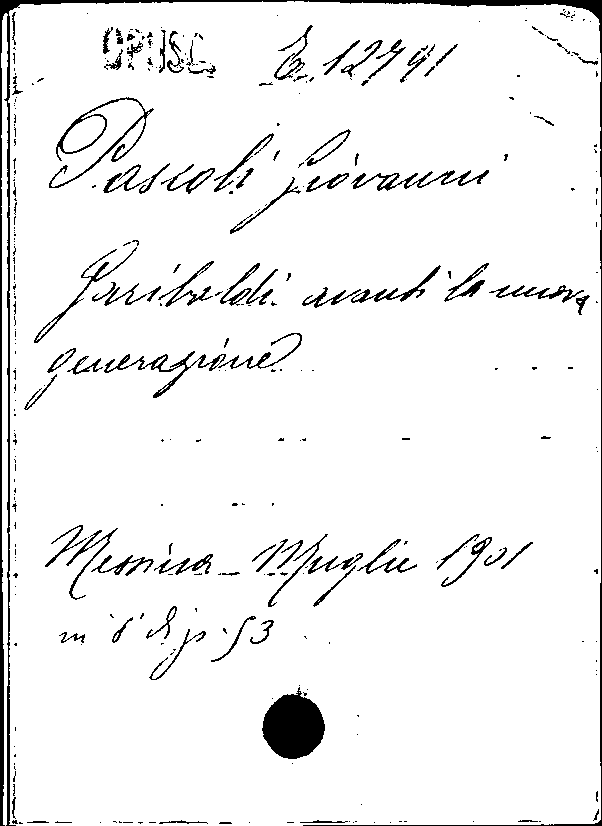 OPUSC. E 12791
Pascoli Giovanni
Garibaldi avanti la nuova
generazione
Messina - Muglia 1901
in 8° di p. 53